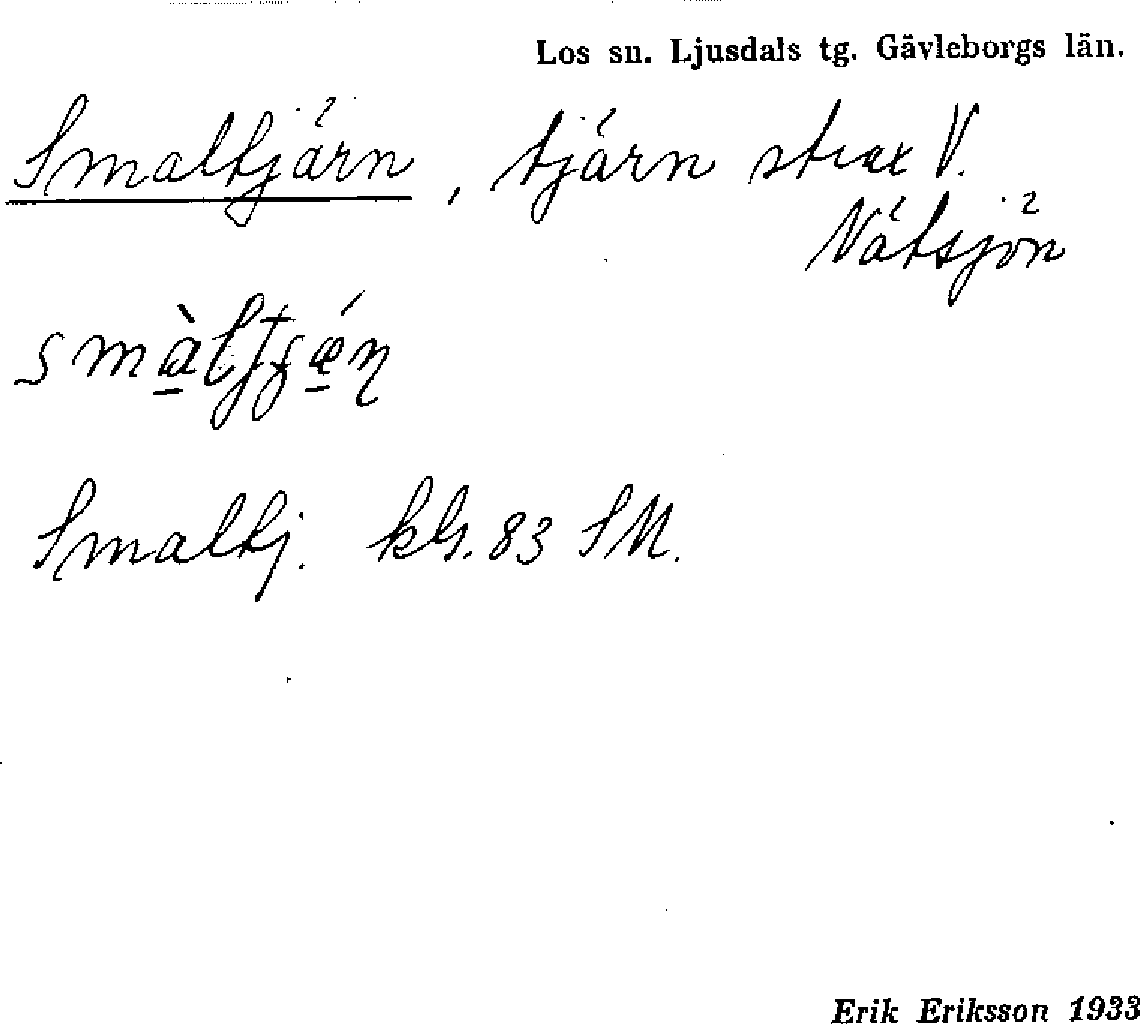 Los sn. Ljusdals tg. Gävleborgs län.
Smaltjärn, tjärn strax V.
Nätsjön
Smaltj. kls. 83 SM.
Erik Eriksson 1933